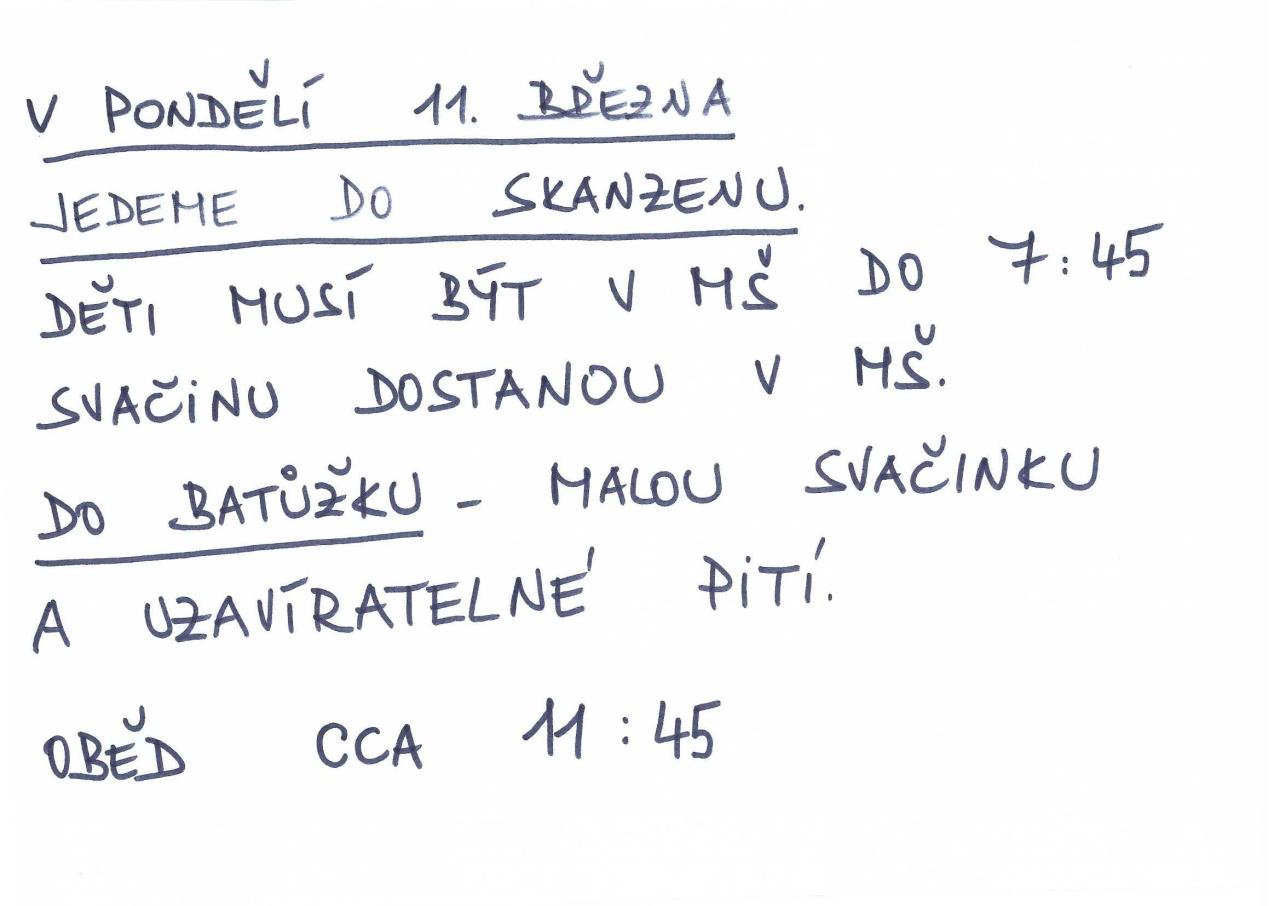 V PONDĚLÍ 11. BŘEZNA
JEDEME DO SKANZENU.
DĚTI MUSÍ BÝT V MŠ DO 7:45
SVAČINU DOSTANOU V MŠ.
DO BATŮŽKU - MALOU SVAČINKU
A UZAVÍRATELNÉ PITÍ.
OBĚD CCA 11:45